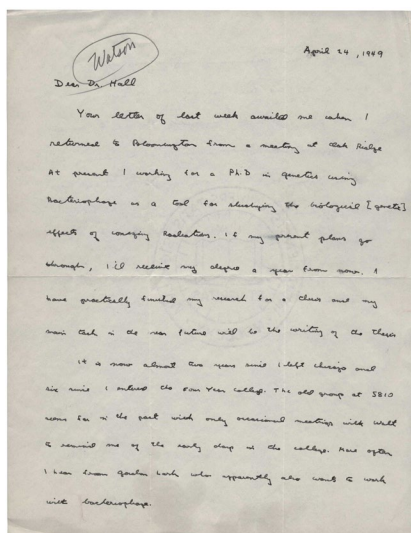 Watson
April 24, 1949
Dear Dr. Hall
Your letter of last week awaited me when I
returned to Bloomington from a meeting at Oak Ridge
At present I working for a Ph.D in genetics using
Bacteriophage as a tool for studying the biological [genetic]
effects of ionizing Radiation. If my present plans go
through, I'll receive my degree a year from now. I
have practically finished my research for a thesis and my
main task in the near future will be the writing of the thesis
It is now almost two years since I left Chicago and
six since I entered the Four Year College. The old group at 5810
seems far in the past with only occasional meetings with Walt
to remind me of the early days at the college. More often
I hear from Gordon who apparently also wants to work
with bacteriophage.